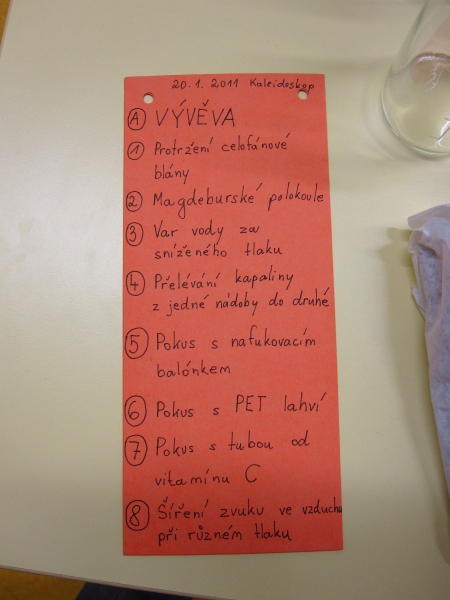 20.1.2011 Kaleidoskop
A VÝVĚVA
1 Protržení celofánové
blány
2 Magdeburské polokoule
3 Var vody za
sníženého tlaku
4 Přelévání kapaliny
z jedné nádoby do druhé
5 Pokus s nafukovacím
balónkem
6 Pokus s PET lahví
7 Pokus s tubou od
vitamínu C
8 Šíření zvuku ve vzduchu
při různém tlaku